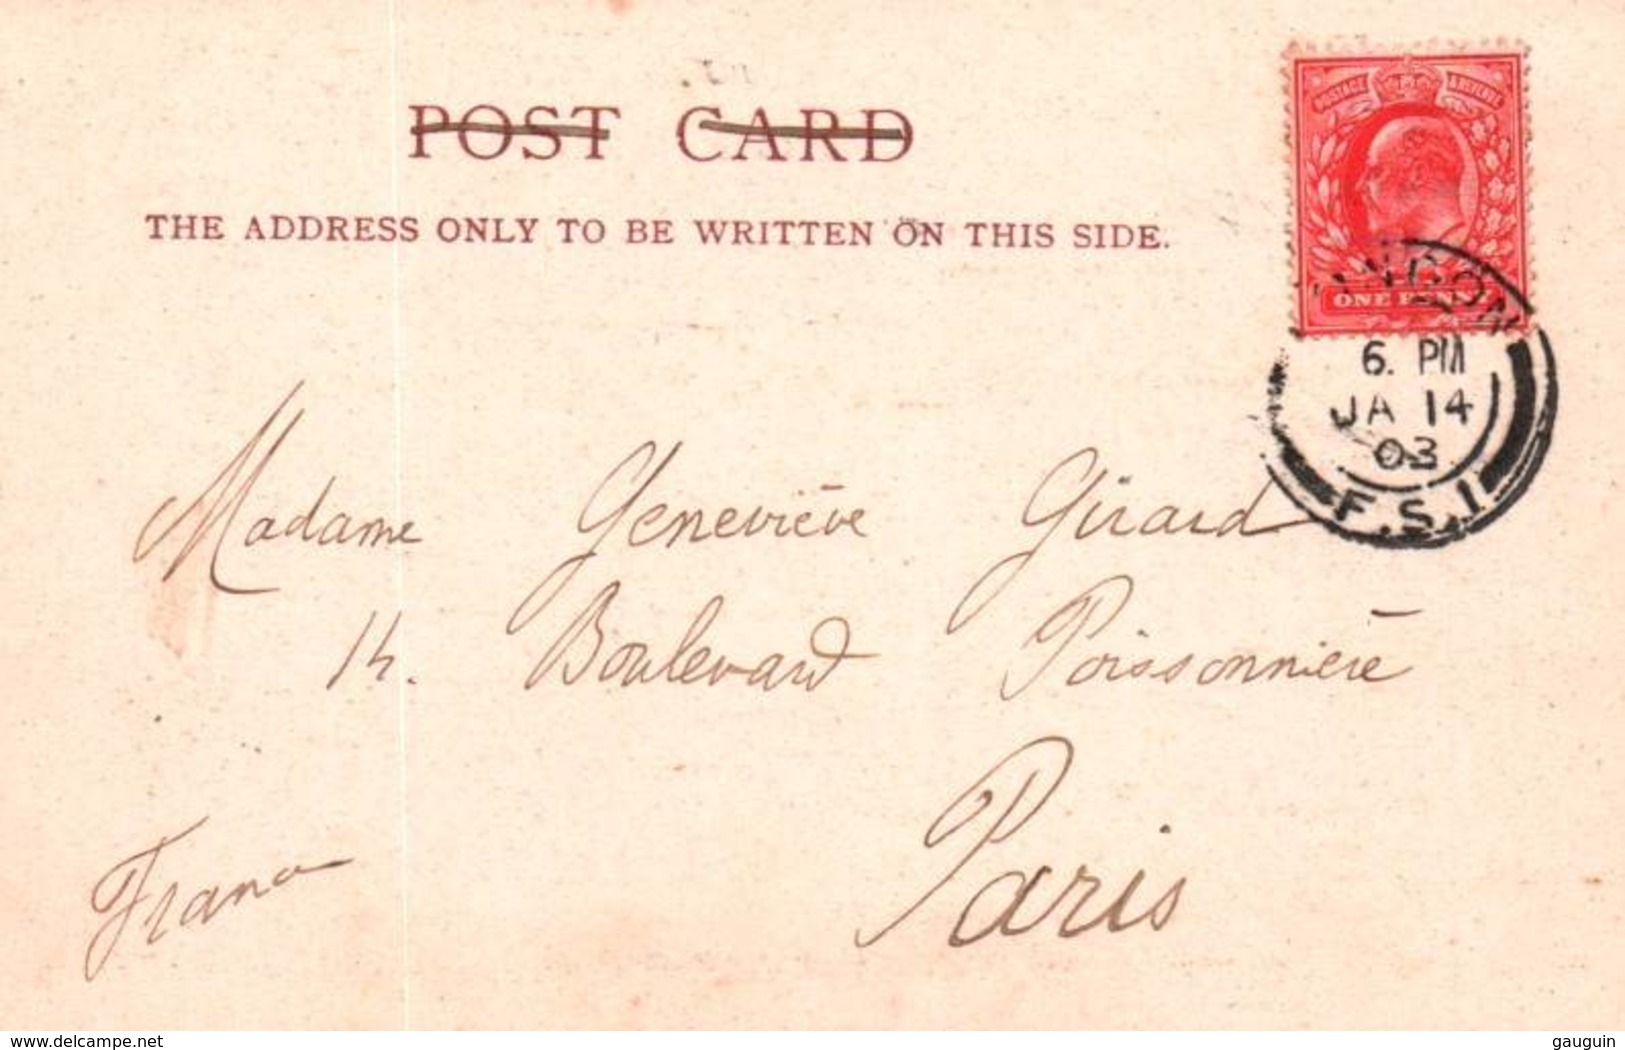 POST CARD
THE ADDRESS ONLY TO BE WRITTEN ON THIS SIDE.
POSTAGE
ONE PENNY
LONDON
6. PM
JA 14
03
F.S.1
Madame Geneviève Girard
14. Boulevard Poissonnière
Paris
France
www.delcampe.net
gauguin